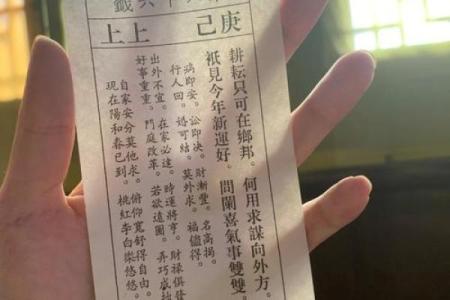 十六籤
庚己 上上
耕耘只可在鄉邦。何用求謀向外方。
祇見今年新運好。門闌喜氣事雙雙。
病即安。訟即決。財漸豐。名高揭。
行人回。婚可結。莫外求。福儘得。
出外不宜。在家必達。時運將亨。財祿俱發
好事重重。門庭改革。若欲遠圖。弄巧成拙
自家安分莫他求。俯仰寬舒得自由。
現在陽和春已到。桃紅李白樂悠悠。